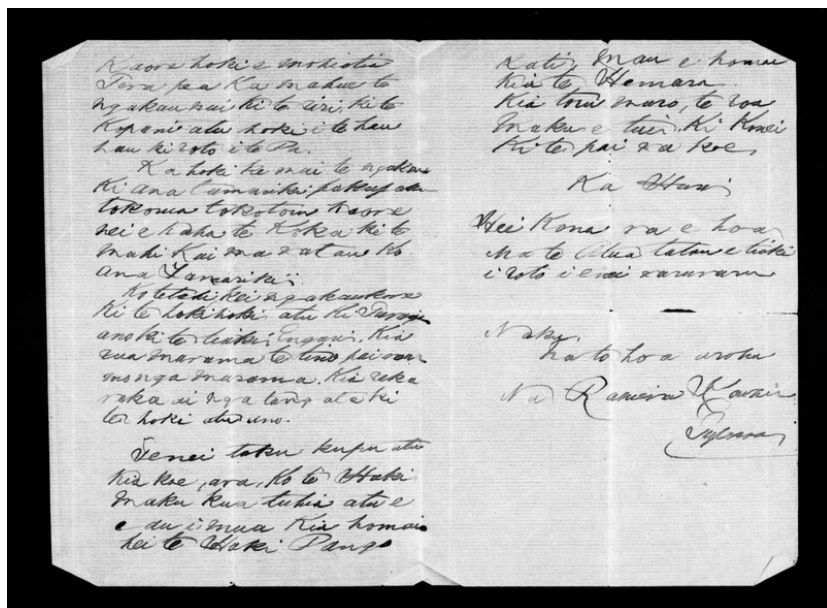 Kaore hoki e mohiotia
Tera pea Ka mahue te
ngakau nui ki te riri ki te
Kopani atu hoki i te hau
hau ki roto i te Pa.
Ka hoki ke mai te ngakau
Ki ana tamariki
tokorua tokotoru Kaore
nei e taha te Koka ki te
mahi Kai ma ratau Ko
ana Tamariki
Ko tetahi kei ngakaukore
Ki te hokihoki atu ki
ano ki te tiaki, Kia
rua marama te tino pai
mo nga marama. Kia
ai nga tangata ki
te hoki atu ano.
Tenei taku kupu atu
Kia koe, ara, Ko te Haki
maku kua tuhia atu e
e au i mua Kia homai
hei te Haki Pango
Kati, Mau e homai
Kia te Hemara
Kia toru maro, te roa
Maku e tui. Ki Konei
Ki te pai ra koe,
Ka Huri
Hei Kona ra e hoa
Ma te Atua tatau e tiaki
i roto i enei raruraru
Naku,
na to hoa aroha
Na